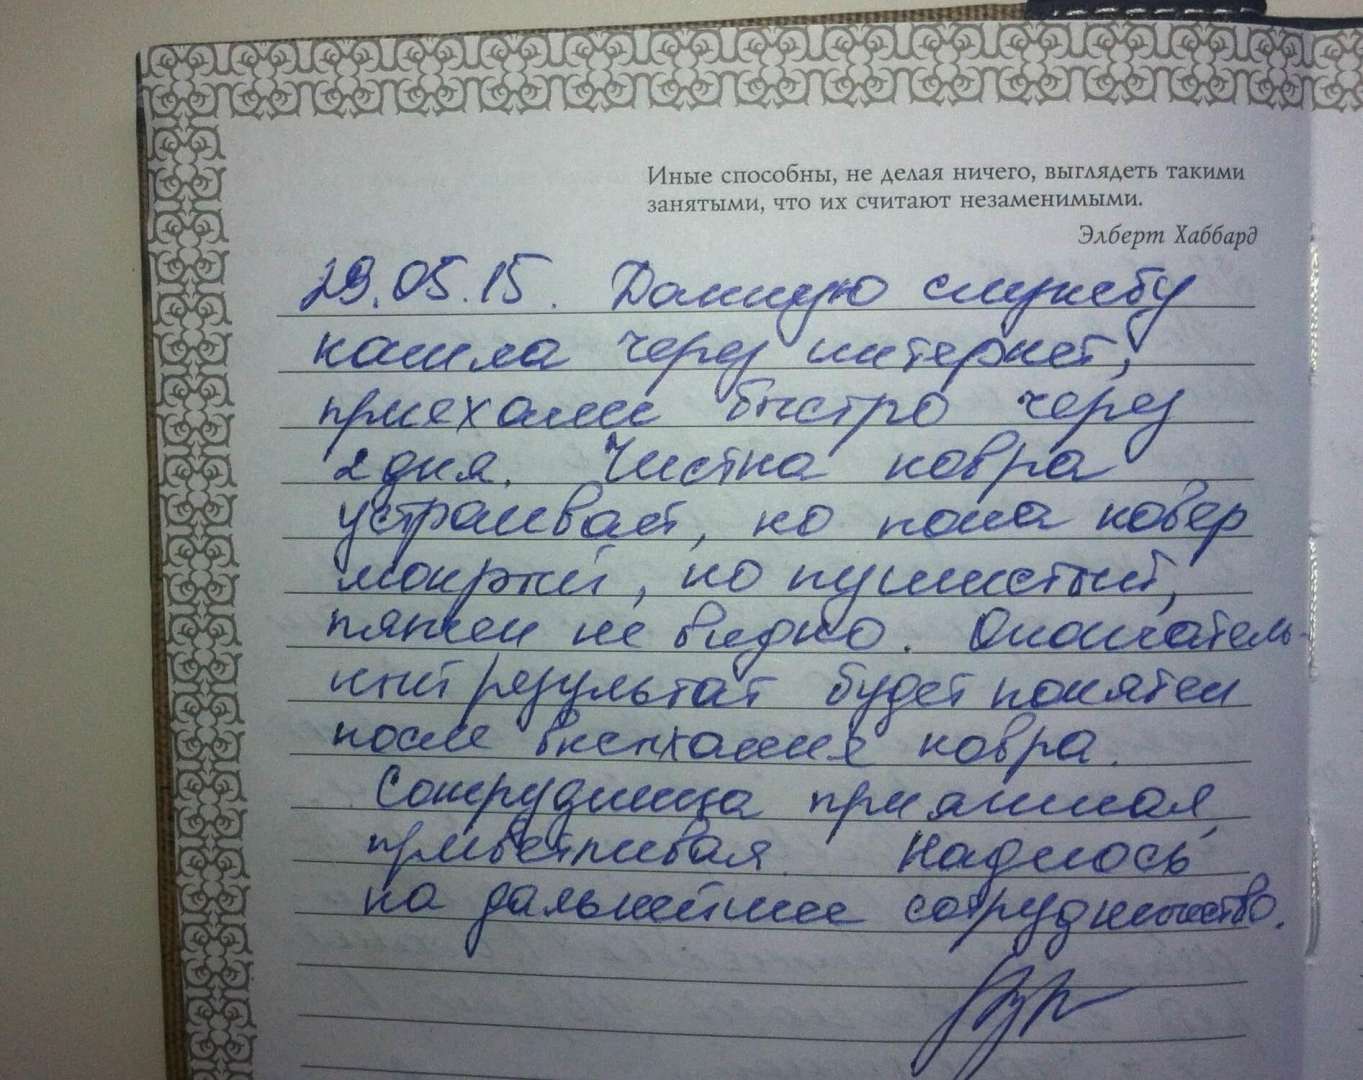 Иные способны, не делая ничего, выглядеть такими
занятыми, что их считают незаменимыми.
Элберт Хаббард
29.05.15. Данную службу
нашла через интернет,
приехали быстро через
2 дня. Чистка ковра
устраивает, но пока ковер
мокрый, но пушистый,
пятен не видно. Окончатель-
ный результат будет понятен
после высыхания ковра.
Сотрудница приятная,
приветливая. Надеюсь
на дальнейшее сотрудничество.